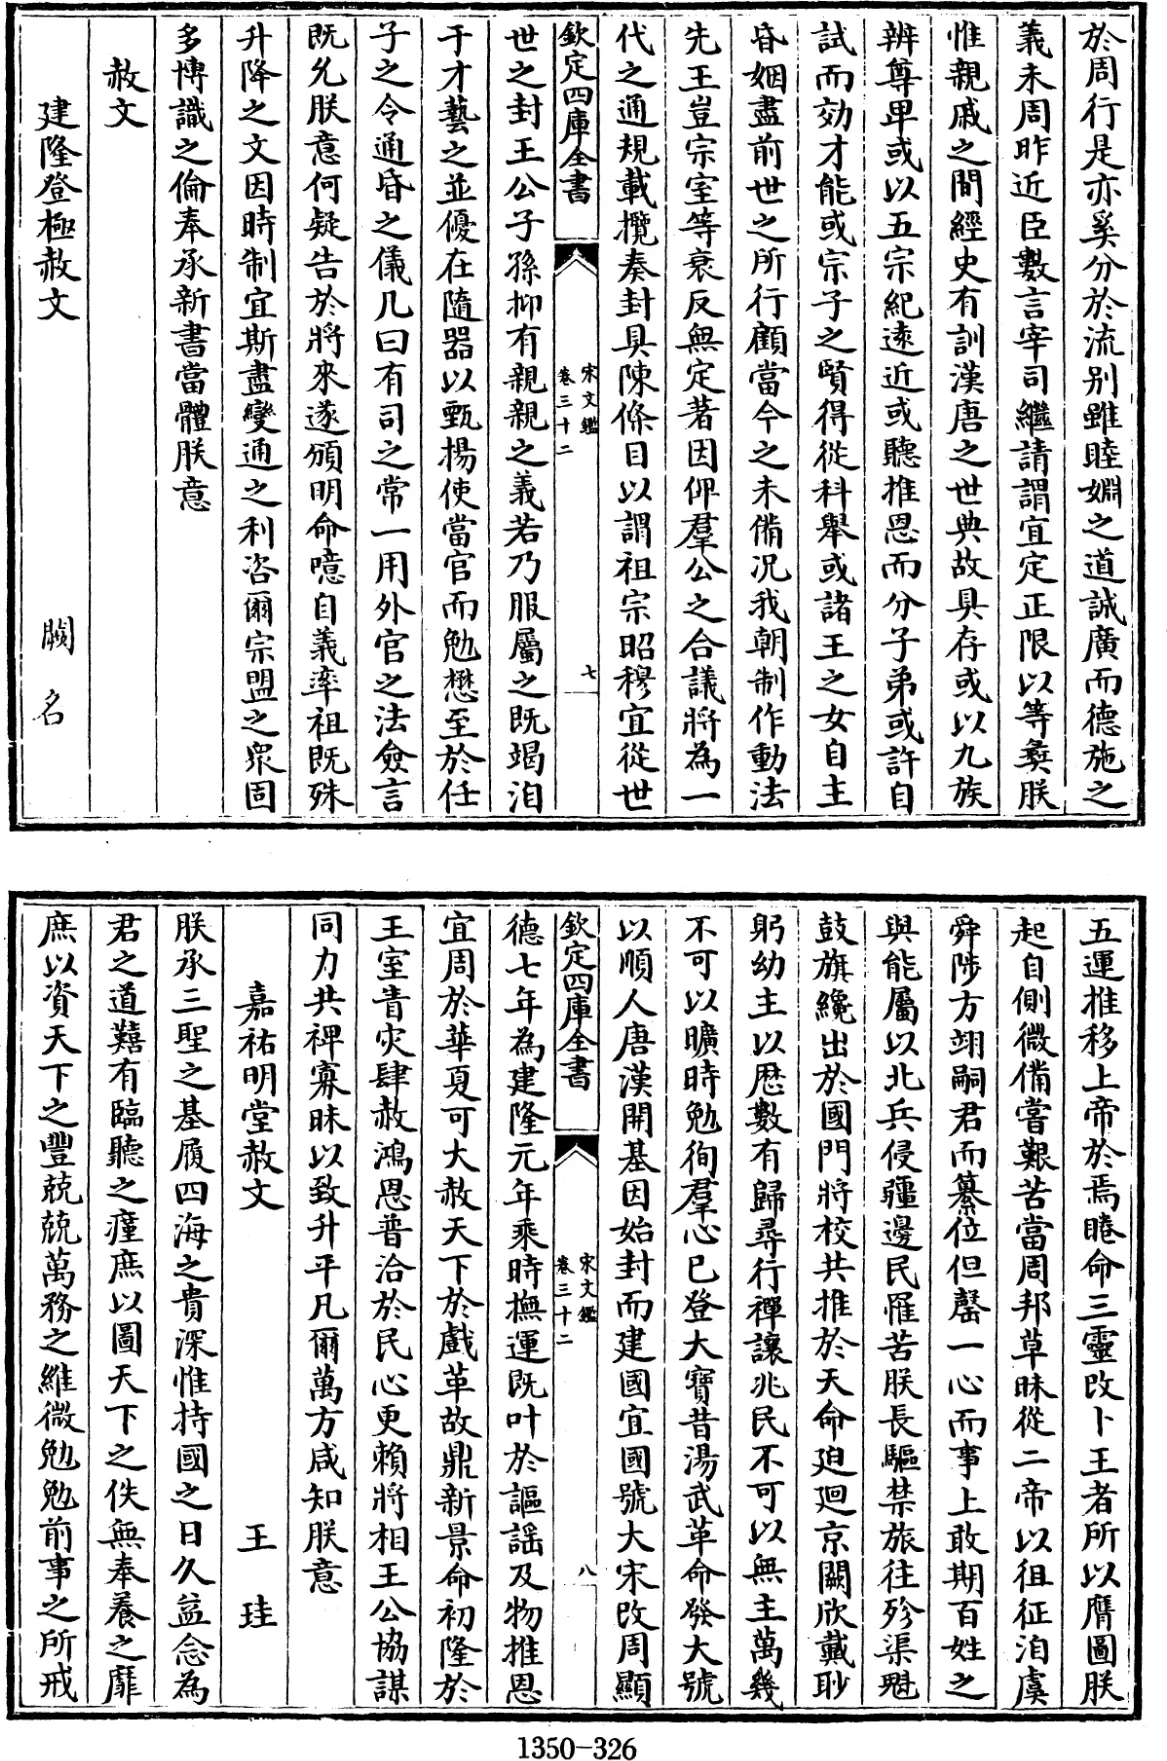 於周行是亦奚分於流别雖睦婣之道誠廣而德施之
義未周昨近臣數言宰司繼請謂宜定正限以等彝朕
惟親戚之間經史有訓漢唐之世典故具存或以九族
辨尊卑或以五宗紀逺近或聽推恩而分子弟或許自
試而効才能或宗子之賢得從科舉或諸王之女自主
昏姻盡前世之所行顧當今之未備况我朝制作動法
先王豈宗室等衰反無定著因仰羣公之合議將為一
代之通規載攬奏封具陳條目以謂祖宗昭穆宜從世
欽定四庫全書
宋文鑑
卷三十二
七
世之封王公子孫抑有親親之義若乃服屬之既竭洎
于才藝之並優在隨器以甄揚使當官而勉懋至於任
子之令通昏之儀几曰有司之常一用外官之法僉言
既允朕意何疑告於將來遂頒明命噫自義率祖既殊
升降之文因時制宜斯盡變通之利咨爾宗盟之衆固
多博識之倫奉承新書當體朕意
赦文
建隆登極赦文 闕名
五運推移上帝於焉睠命三靈改卜王者所以膺圖朕
起自側微備嘗艱苦當周邦草昧從二帝以徂征洎虞
舜陟方翊嗣君而纂位但罄一心而事上敢期百姓之
與能屬以北兵侵疆邊民罹苦朕長驅禁旅往殄渠魁
鼓旗纔出於國門將校共推於天命迫迴京闕欣戴眇
躬幼主以厯數有歸尋行禪讓兆民不可以無主萬幾
不可以曠時勉徇羣心已登大寶昔湯武革命發大號
以順人唐漢開基因始封而建國宜國號大宋改周顯
欽定四庫全書
宋文鑑
卷三十二
八
德七年為建隆元年乘時撫運既叶於謳謡及物推恩
宜周於華夏可大赦天下於戲革故鼎新景命初隆於
王室眚灾肆赦鴻恩普洽於民心更頼將相王公協謀
同力共禆寡昧以致升平凡爾萬方咸知朕意
嘉祐明堂赦文 王珪
朕承三聖之基履四海之貴深惟持國之日久益念為
君之道囏有臨聽之㢈庶以圖天下之佚無奉養之靡
庶以資天下之豐兢兢萬務之維微勉勉前事之所戒
1350-326